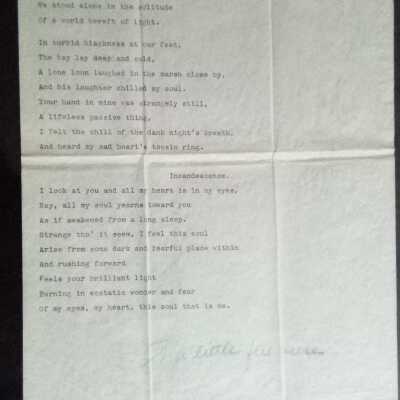 We stood alone in the solitude
Of a world bereft of light.
In turbid blackness at our feet,
The bay lay deep and cold,
A lone loon laughed in the marsh close by,
And his laughter chilled my soul.
Your hand in mine was strangely still,
A lifeless passive thing,
I felt the chill of the dank night's breath,
And heard my sad heart's tocsin ring.
Incandescence.
I look at you and all my heart is in my eyes.
Nay, all my soul yearns toward you
As if awakened from a long sleep.
Strange tho' it seem, I feel this soul
Arise from some dark and fearful place within
And rushing forward
Feels your brilliant light
Burning in ecstatic wonder and fear
Of my eyes, my heart, this soul that is me.
a little